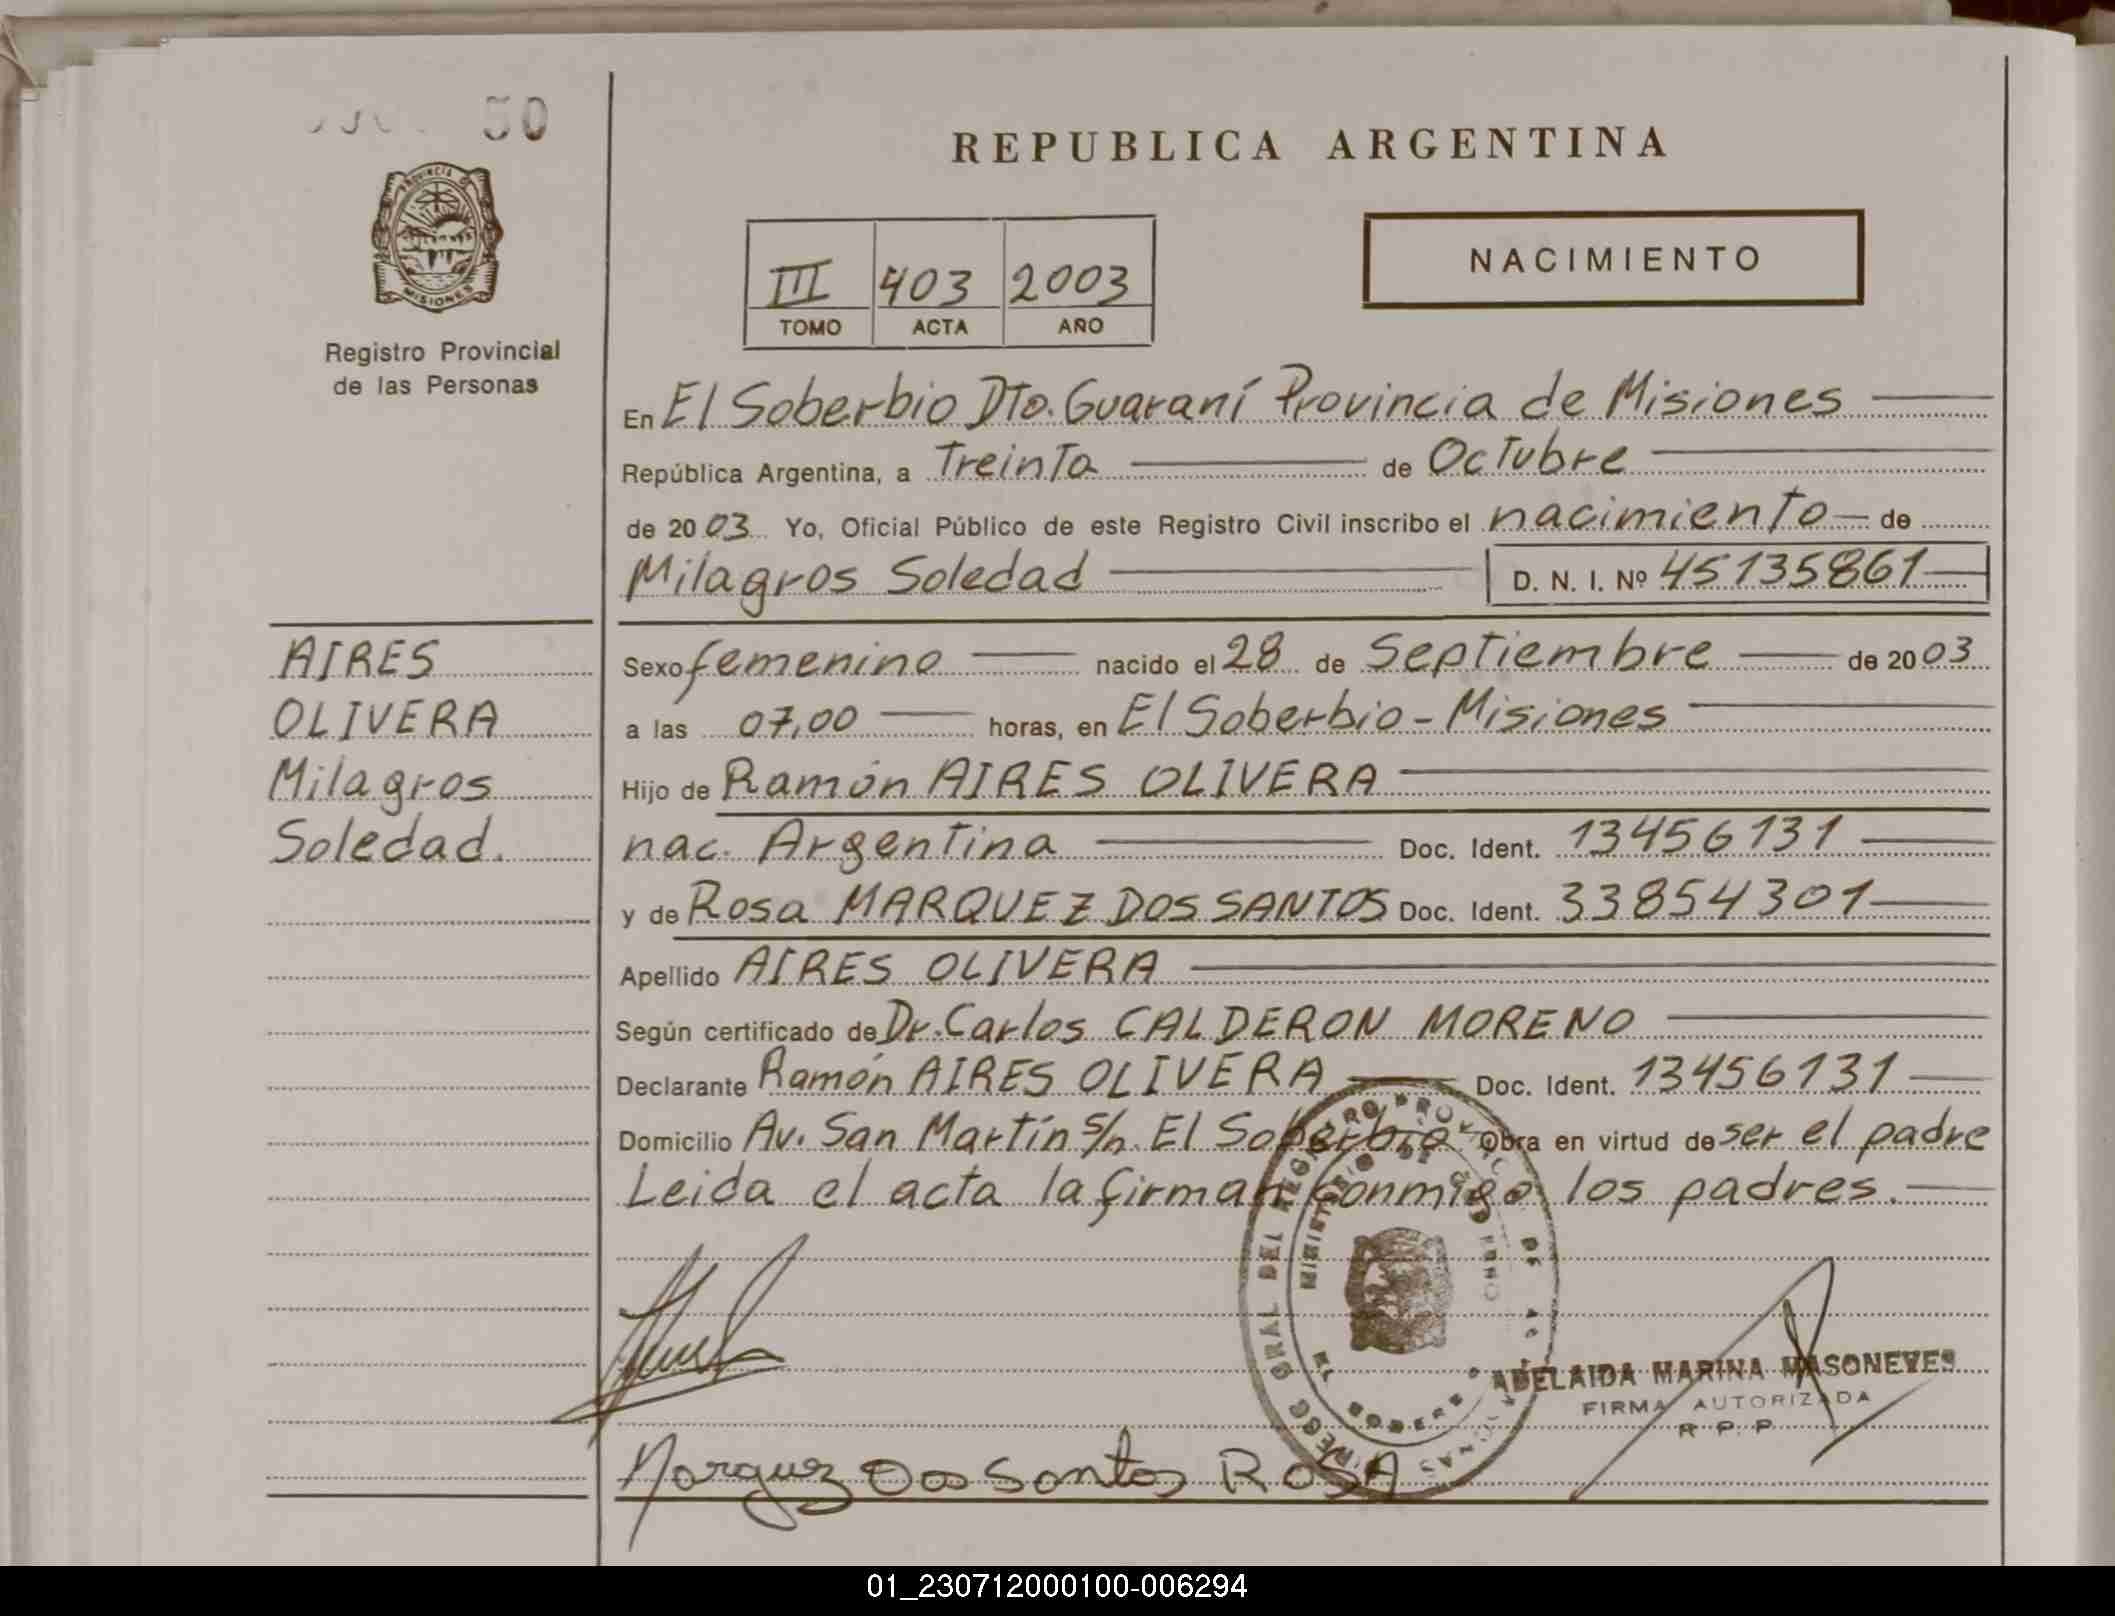 50
REPUBLICA ARGENTINA
PROVINCIA DE
MISIONES
NACIMIENTO
III 403 2003
TOMO ACTA AÑO
Registro Provincial
de las Personas
En El Soberbio Dto. Guaraní Provincia de Misiones
República Argentina, a Treinta de Octubre
de 2003 Yo, Oficial Público de este Registro Civil inscribo el nacimiento de
Milagros Soledad D. N. I. Nº 45135861
AIRES
OLIVERA
Milagros
Soledad.
Sexo femenino nacido el 28 de Septiembre de 2003
a las 07,00 horas, en El Soberbio - Misiones
Hijo de Ramón AIRES OLIVERA
nac. Argentina Doc. Ident. 13456131
y de Rosa MARQUEZ DOS SANTOS Doc. Ident. 33854301
Apellido AIRES OLIVERA
Según certificado de Dr. Carlos CALDERON MORENO
Declarante Ramón AIRES OLIVERA Doc. Ident. 13456131
Domicilio Av. San Martín s/n. El Soberbio Obra en virtud de ser el padre
Leida el acta la firman conmigo los padres.
ADELAIDA MARINA MASONEVES
FIRMA AUTORIZADA
R. P. P.
Marquez Dos Santos ROSA
01_230712000100-006294